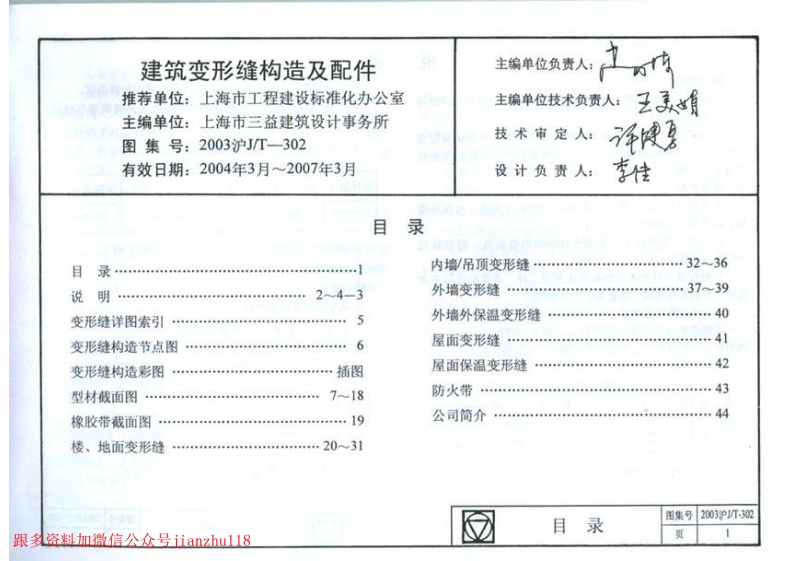 建筑变形缝构造及配件
推荐单位：上海市工程建设标准化办公室
主编单位：上海市三益建筑设计事务所
图集号：2003沪J/T—302
有效日期：2004年3月～2007年3月
主编单位负责人：
主编单位技术负责人：王美娟
技术审定人：
设计负责人：李佳
目 录
目 录 1
说 明 2～4—3
变形缝详图索引 5
变形缝构造节点图 6
变形缝构造彩图 插图
型材截面图 7～18
橡胶带截面图 19
楼、地面变形缝 20～31
内墙/吊顶变形缝 32～36
外墙变形缝 37～39
外墙外保温变形缝 40
屋面变形缝 41
屋面保温变形缝 42
防火带 43
公司简介 44
目 录
图集号 2003沪J/T-302
页 1
跟多资料加微信公众号jianzhu118